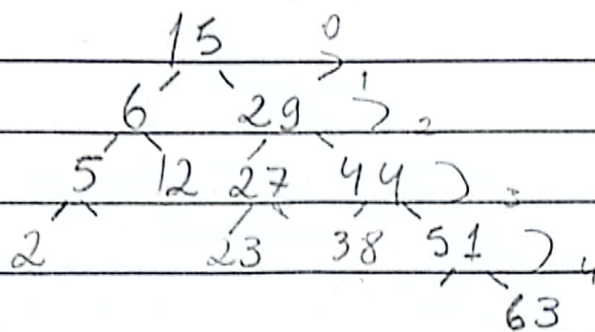 15 0
6 29 1
2
5 12 27 44
3
2 23 38 51
4
63